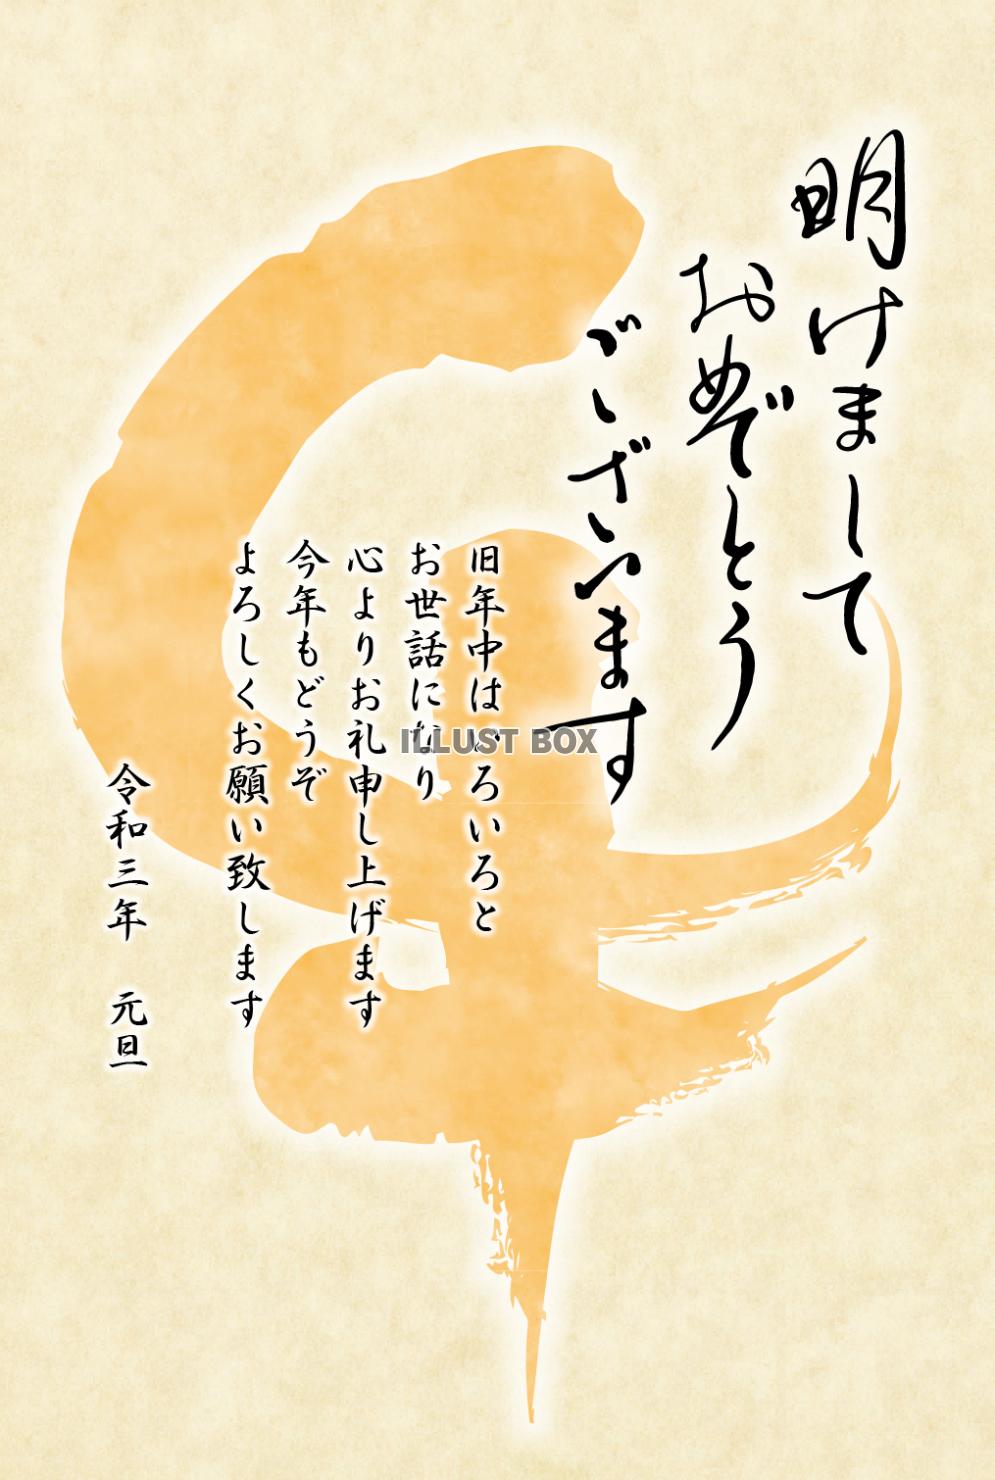 明けまして
おめでとう
ございます
旧年中はいろいろと
お世話になり
心よりお礼申し上げます
今年もどうぞ
よろしくお願い致します
令和三年 元旦
ILLUST BOX